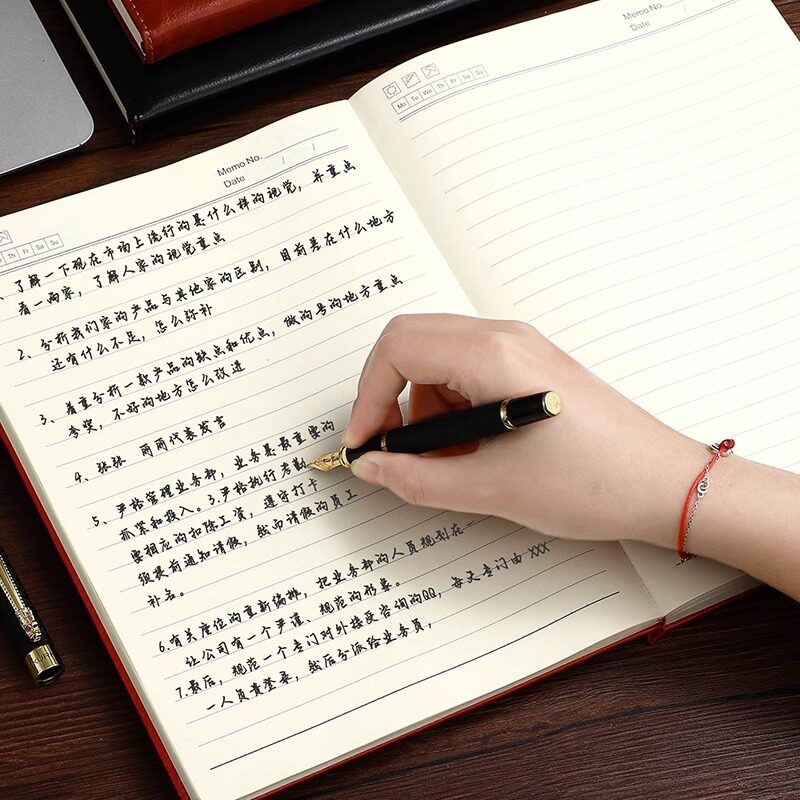 Memo No.
Date / /
Th Fr Sa Su
、了解一下现在市场上流行的是什么样的视觉，并重点
看一两家，了解人家的视觉重点
2、分析我们家的产品与其他家的区别，目前是在什么地方
还有什么不足，怎么弥补
3、着重分析一款产品的缺点和优点，做的号的地方重点
夸奖，不好的地方怎么改进
4、张张 丽丽代表发言
5、严格管理业务部，业务是最重要的
抓紧和投入。3.严格执行考勤
要相应的扣除工资，遵守打卡
须提前通知请假，然而请假的员工
补名。
6.有关座位的重新编排，把业务部的人员规划在一
让公司有一个严谨、规范的形象。
7.最后，规范一个专门对外接受咨询的QQ，每天专门由XXX
一人员责登录，然后分派给业务员，
Mo Tu We Th Fr Sa Su
Memo No.
Date